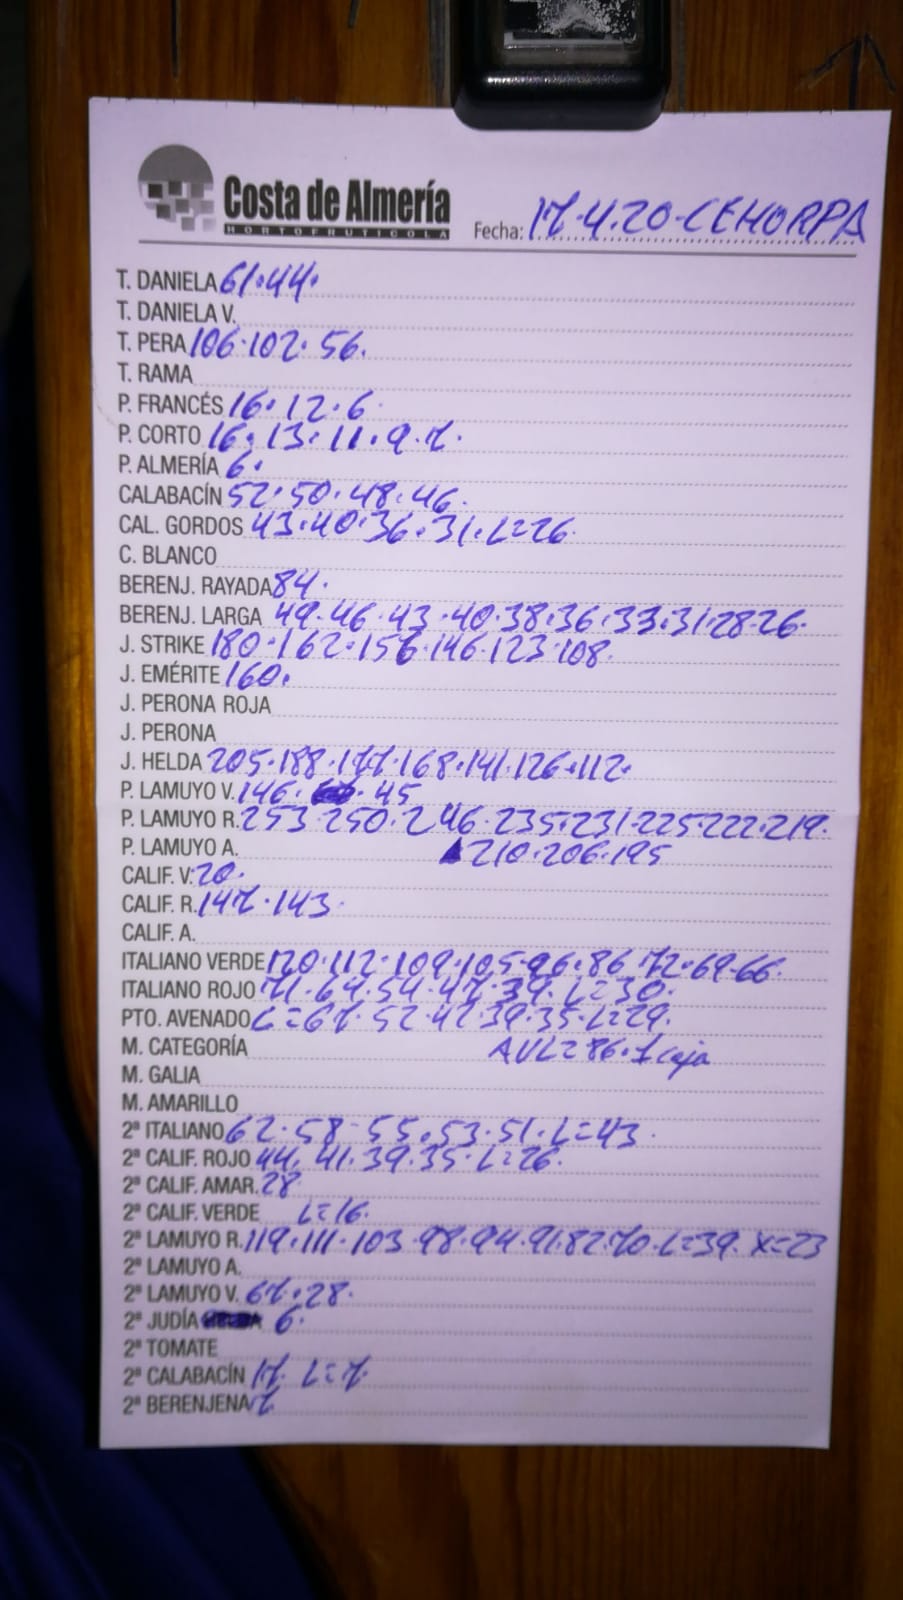 Costa de Almería
HORTOFRUTICOLA
Fecha: 17.4.20-CEHORPA
T. DANIELA 61.44.
T. DANIELA V.
T. PERA 106.102.56.
T. RAMA
P. FRANCÉS 16.12.6.
P. CORTO 16.13.11.9.7.
P. ALMERÍA 6.
CALABACÍN 52.50.48.46.
CAL. GORDOS 43.40.36.31.L=26.
C. BLANCO
BERENJ. RAYADA 84.
BERENJ. LARGA 49.46.43.40.38.36.33.31.28.26.
J. STRIKE 180.162.156.146.123.108.
J. EMÉRITE 160.
J. PERONA ROJA
J. PERONA
J. HELDA 205.188.177.168.141.126.112.
P. LAMUYO V. 146. 45
P. LAMUYO R. 253.250.246.235.231.225.222.219.
P. LAMUYO A. 210.206.195
CALIF. V. 20.
CALIF. R. 147.143.
CALIF. A.
ITALIANO VERDE 120.112.109.105.96.86.72.69.66.
ITALIANO ROJO 71.64.54.47.39.L=30.
PTO. AVENADO L=67.52.42.39.35.L=29.
M. CATEGORÍA AVL=86.1 caja
M. GALIA
M. AMARILLO
2ª ITALIANO 62.58-55.53.51.L=43.
2ª CALIF. ROJO 44.41.39.35.L=26.
2ª CALIF. AMAR. 28
2ª CALIF. VERDE L=16.
2ª LAMUYO R. 119.111.103.98.94.91.82.70.L=39. X=23
2ª LAMUYO A.
2ª LAMUYO V. 67.28.
2ª JUDÍA 6.
2ª TOMATE
2ª CALABACÍN 17. L=7.
2ª BERENJENA 7.